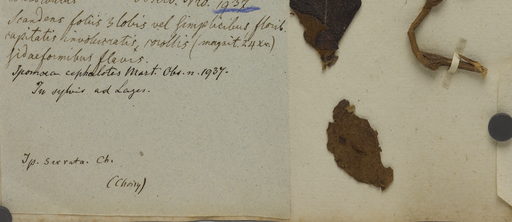 1937
Scandens foliis 3 lobis vel simplicibus florib.
capitatis involucratis, corollis (magnit.
formibus flavis.
Ipomoea cephalotes Mart. Obs. n. 1937.
In sylvis ad Lages.
Ip. serrata. Ch.
(Choisy)